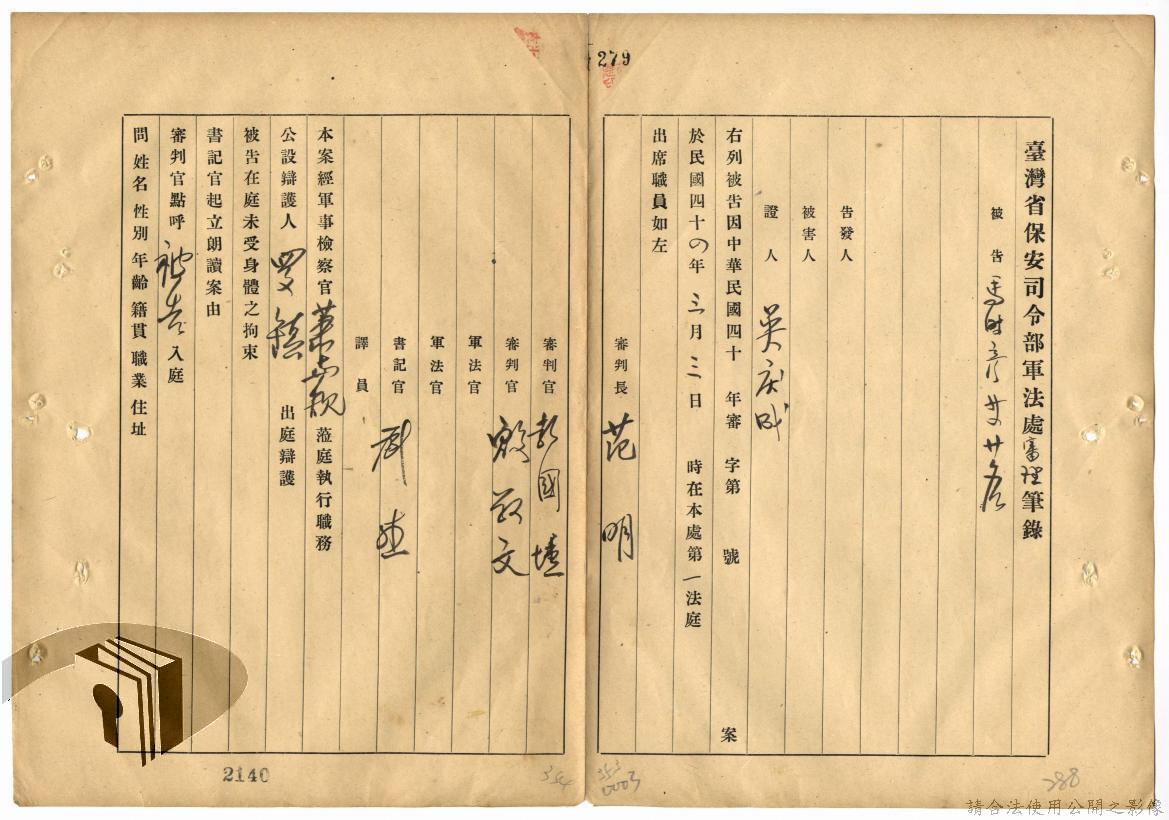 279
臺灣省保安司令部軍法處審理筆錄
被告 馬時彥 等廿名
告發人
被害人
證人 吳慶
右列被告因中華民國四十 年審 字第 號 案
於民國四十四年三月三日 時在本處第一法庭
出席職員如左
審判長 范明
審判官 彭國壎
審判官 殷敬文
軍法官
軍法官
書記官
譯員
本案經軍事檢察官 蒞庭執行職務
公設辯護人 出庭辯護
被告在庭未受身體之拘束
書記官起立朗讀案由
審判官點呼被告入庭
問姓名性別年齡籍貫職業住址
2140
354
353
0003
288
請合法使用公開之影像